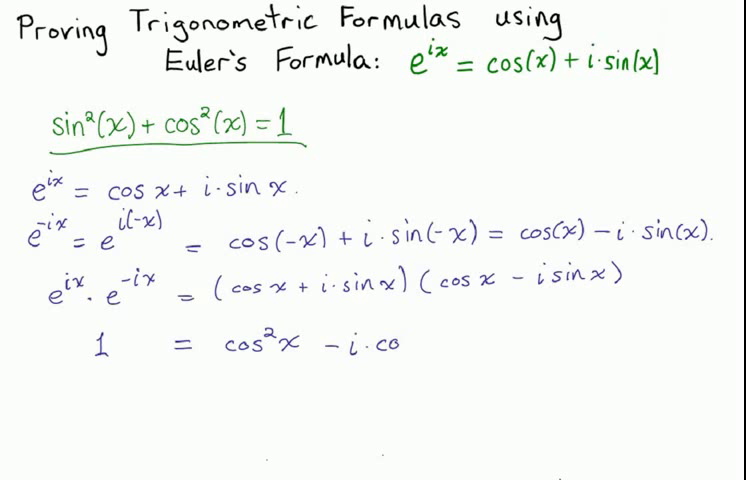 Proving Trigonometric Formulas using
Euler's Formula: e^{ix} = cos(x) + i·sin(x)
sin²(x) + cos²(x) = 1
e^{ix} = cos x + i·sin x.
e^{-ix} = e^{i(-x)} = cos(-x) + i·sin(-x) = cos(x) - i·sin(x).
e^{ix}·e^{-ix} = (cos x + i·sin x)(cos x - i sin x)
1 = cos²x - i·co